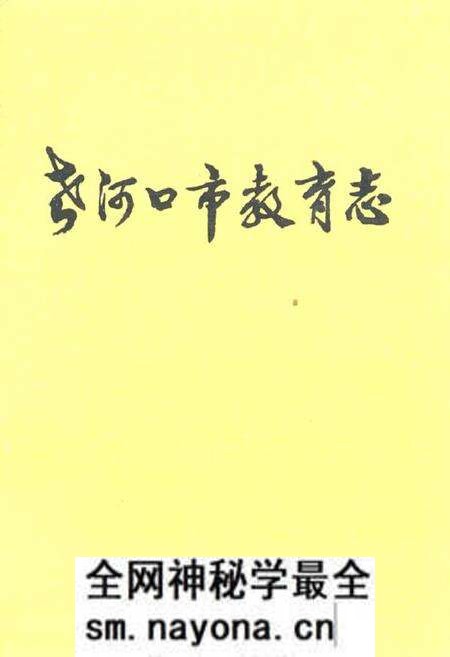 老河口市教育志
全网神秘学最全
sm.nayona.cn